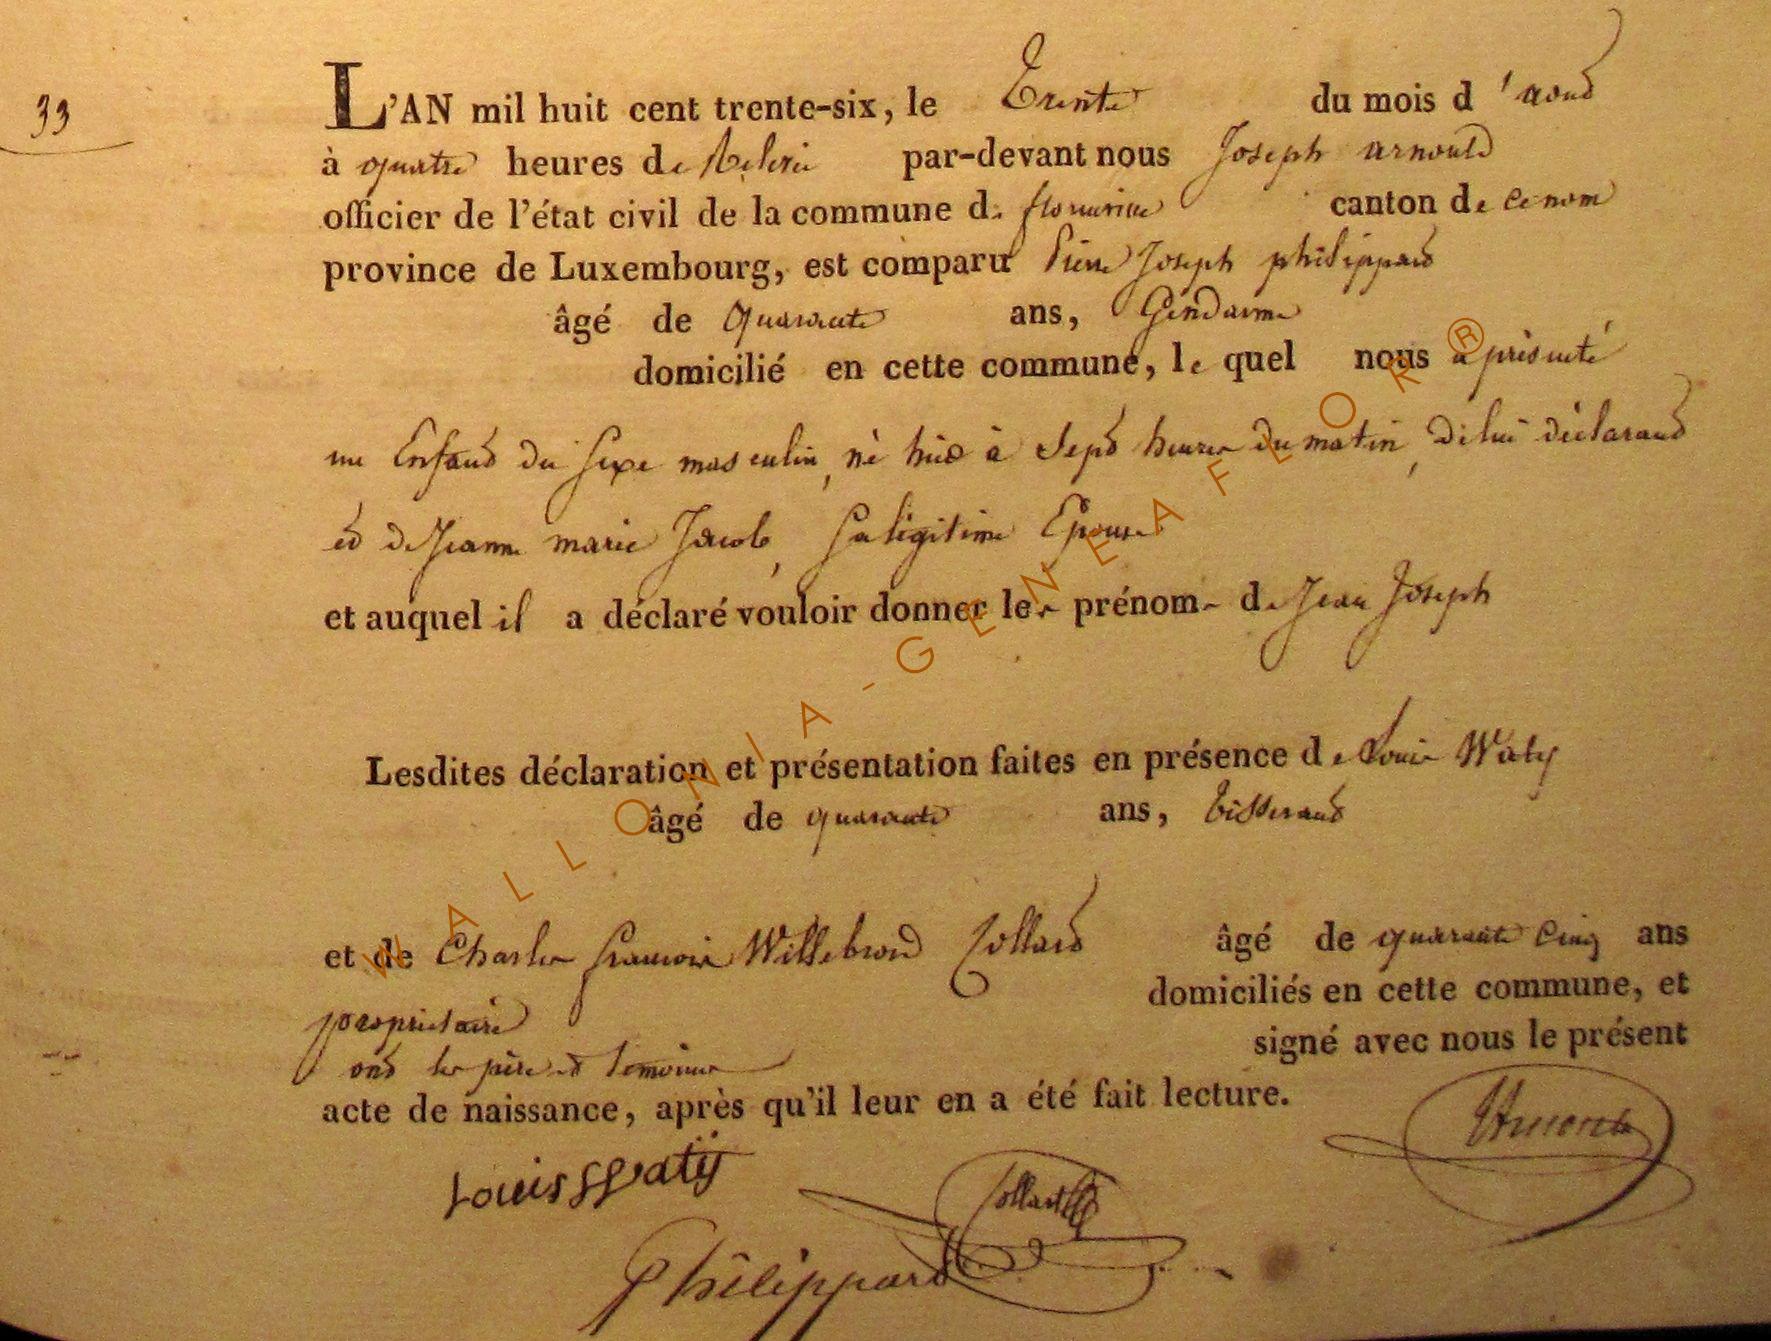 33
L'AN mil huit cent trente-six, le Trente du mois d'aout
à quatre heures de Relevée par-devant nous Joseph arnould
officier de l'état civil de la commune de florenville canton de ce nom
province de Luxembourg, est comparu Pierre Joseph philippart
âgé de Quarante ans, Gendarme
domicilié en cette commune, le quel nous a présenté
un Enfant du Sexe masculin, né hier à Sept heures du matin, de lui déclarant
et de Jeanne marie Jacob, Sa légitime Epouse
et auquel il a déclaré vouloir donner les prénoms de Jean Joseph
Lesdites déclaration et présentation faites en présence de Louis Waty
âgé de quarante ans, tisserant
et de Charles françois Willebrord Collard âgé de quarante cinq ans
propriétaire domiciliés en cette commune, et
ont les père et témoins signé avec nous le présent
acte de naissance, après qu'il leur en a été fait lecture.
Louis Watÿ
Collard
Philippart
WALLONIA-GENEAFLOR®